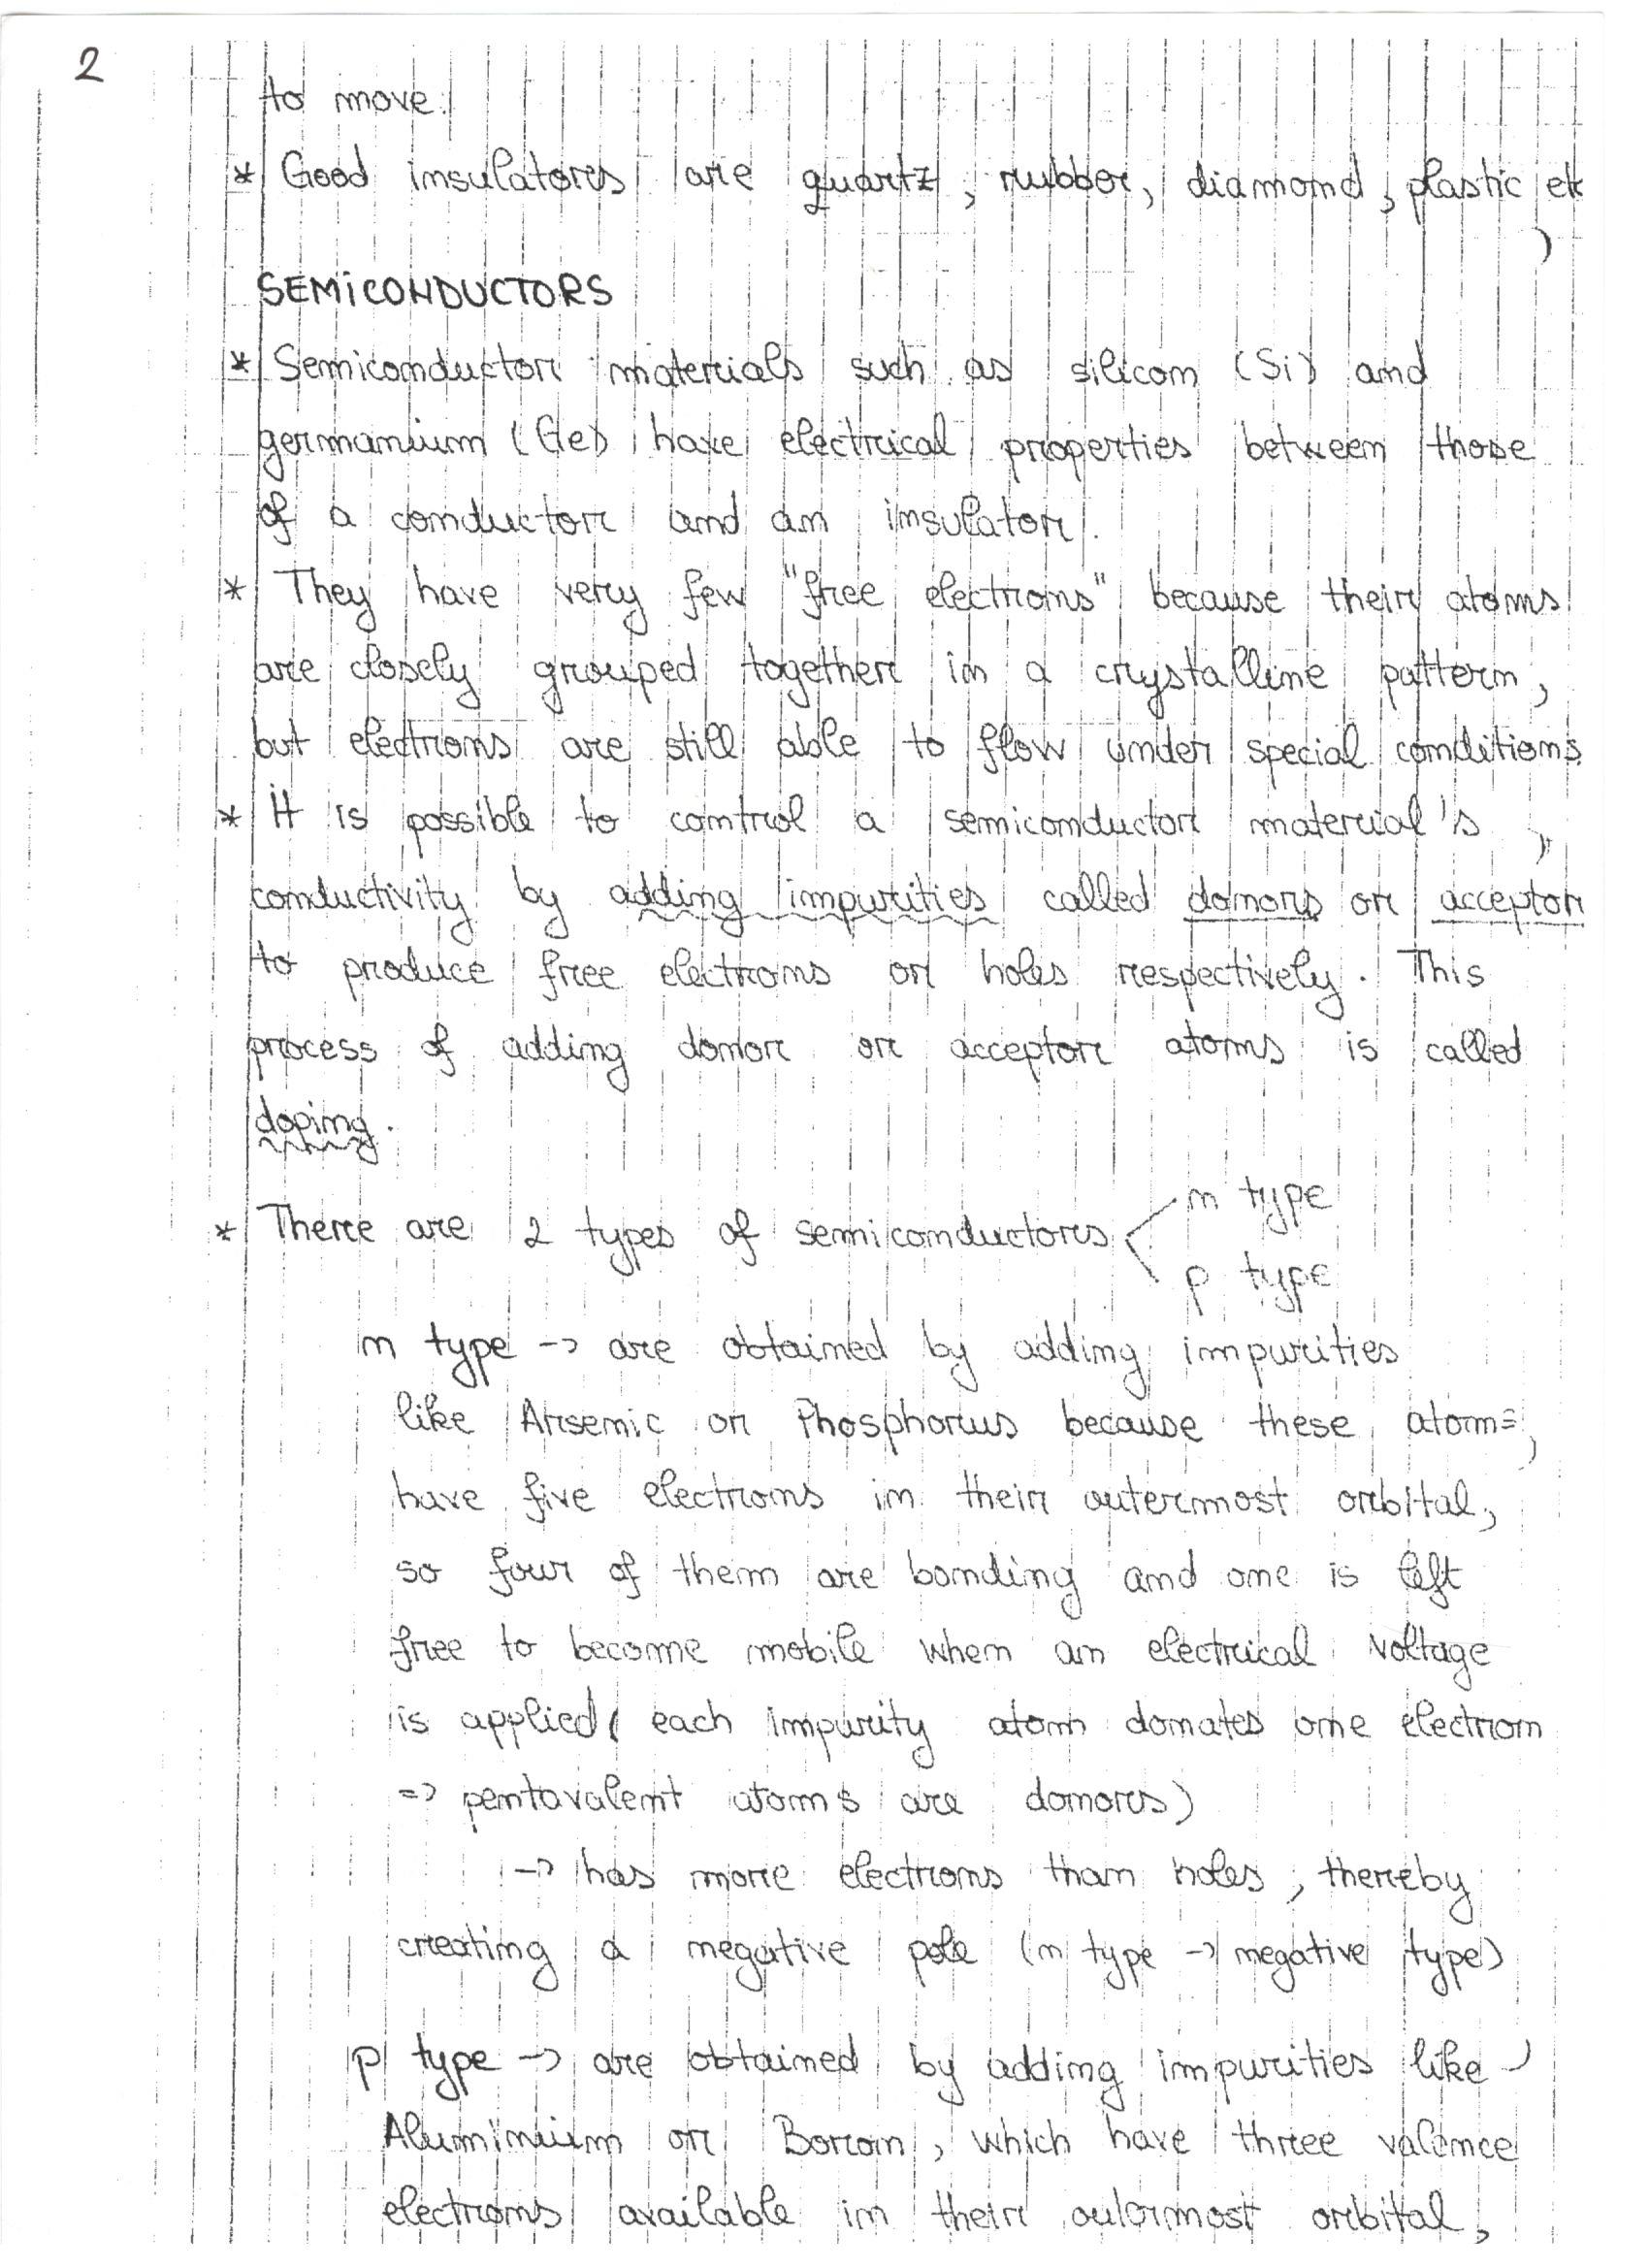 2
to move.
* Good insulators are quartz, rubber, diamond, plastic etc
SEMICONDUCTORS
* Semiconductor materials such as silicon (Si) and
germanium (Ge) have electrical properties between those
of a conductor and an insulator.
* They have very few "free electrons" because their atoms
are closely grouped together in a crystalline pattern,
but electrons are still able to flow under special conditions.
* It is possible to control a semiconductor material's
conductivity by adding impurities called donors or acceptor
to produce free electrons or holes respectively. This
process of adding donor or acceptor atoms is called
doping.
n type
* There are 2 types of semiconductors
p type
n type -> are obtained by adding impurities
like Arsenic or Phosphorus because these atoms
have five electrons in their outermost orbital,
so four of them are bonding and one is left
free to become mobile when an electrical voltage
is applied ( each impurity atom donates one electron
=> pentavalent atoms are donors)
-> has more electrons than holes, thereby
creating a negative pole (n type -> negative type)
p type -> are obtained by adding impurities like
Aluminium or Boron, which have three valence
electrons available in their outermost orbital,